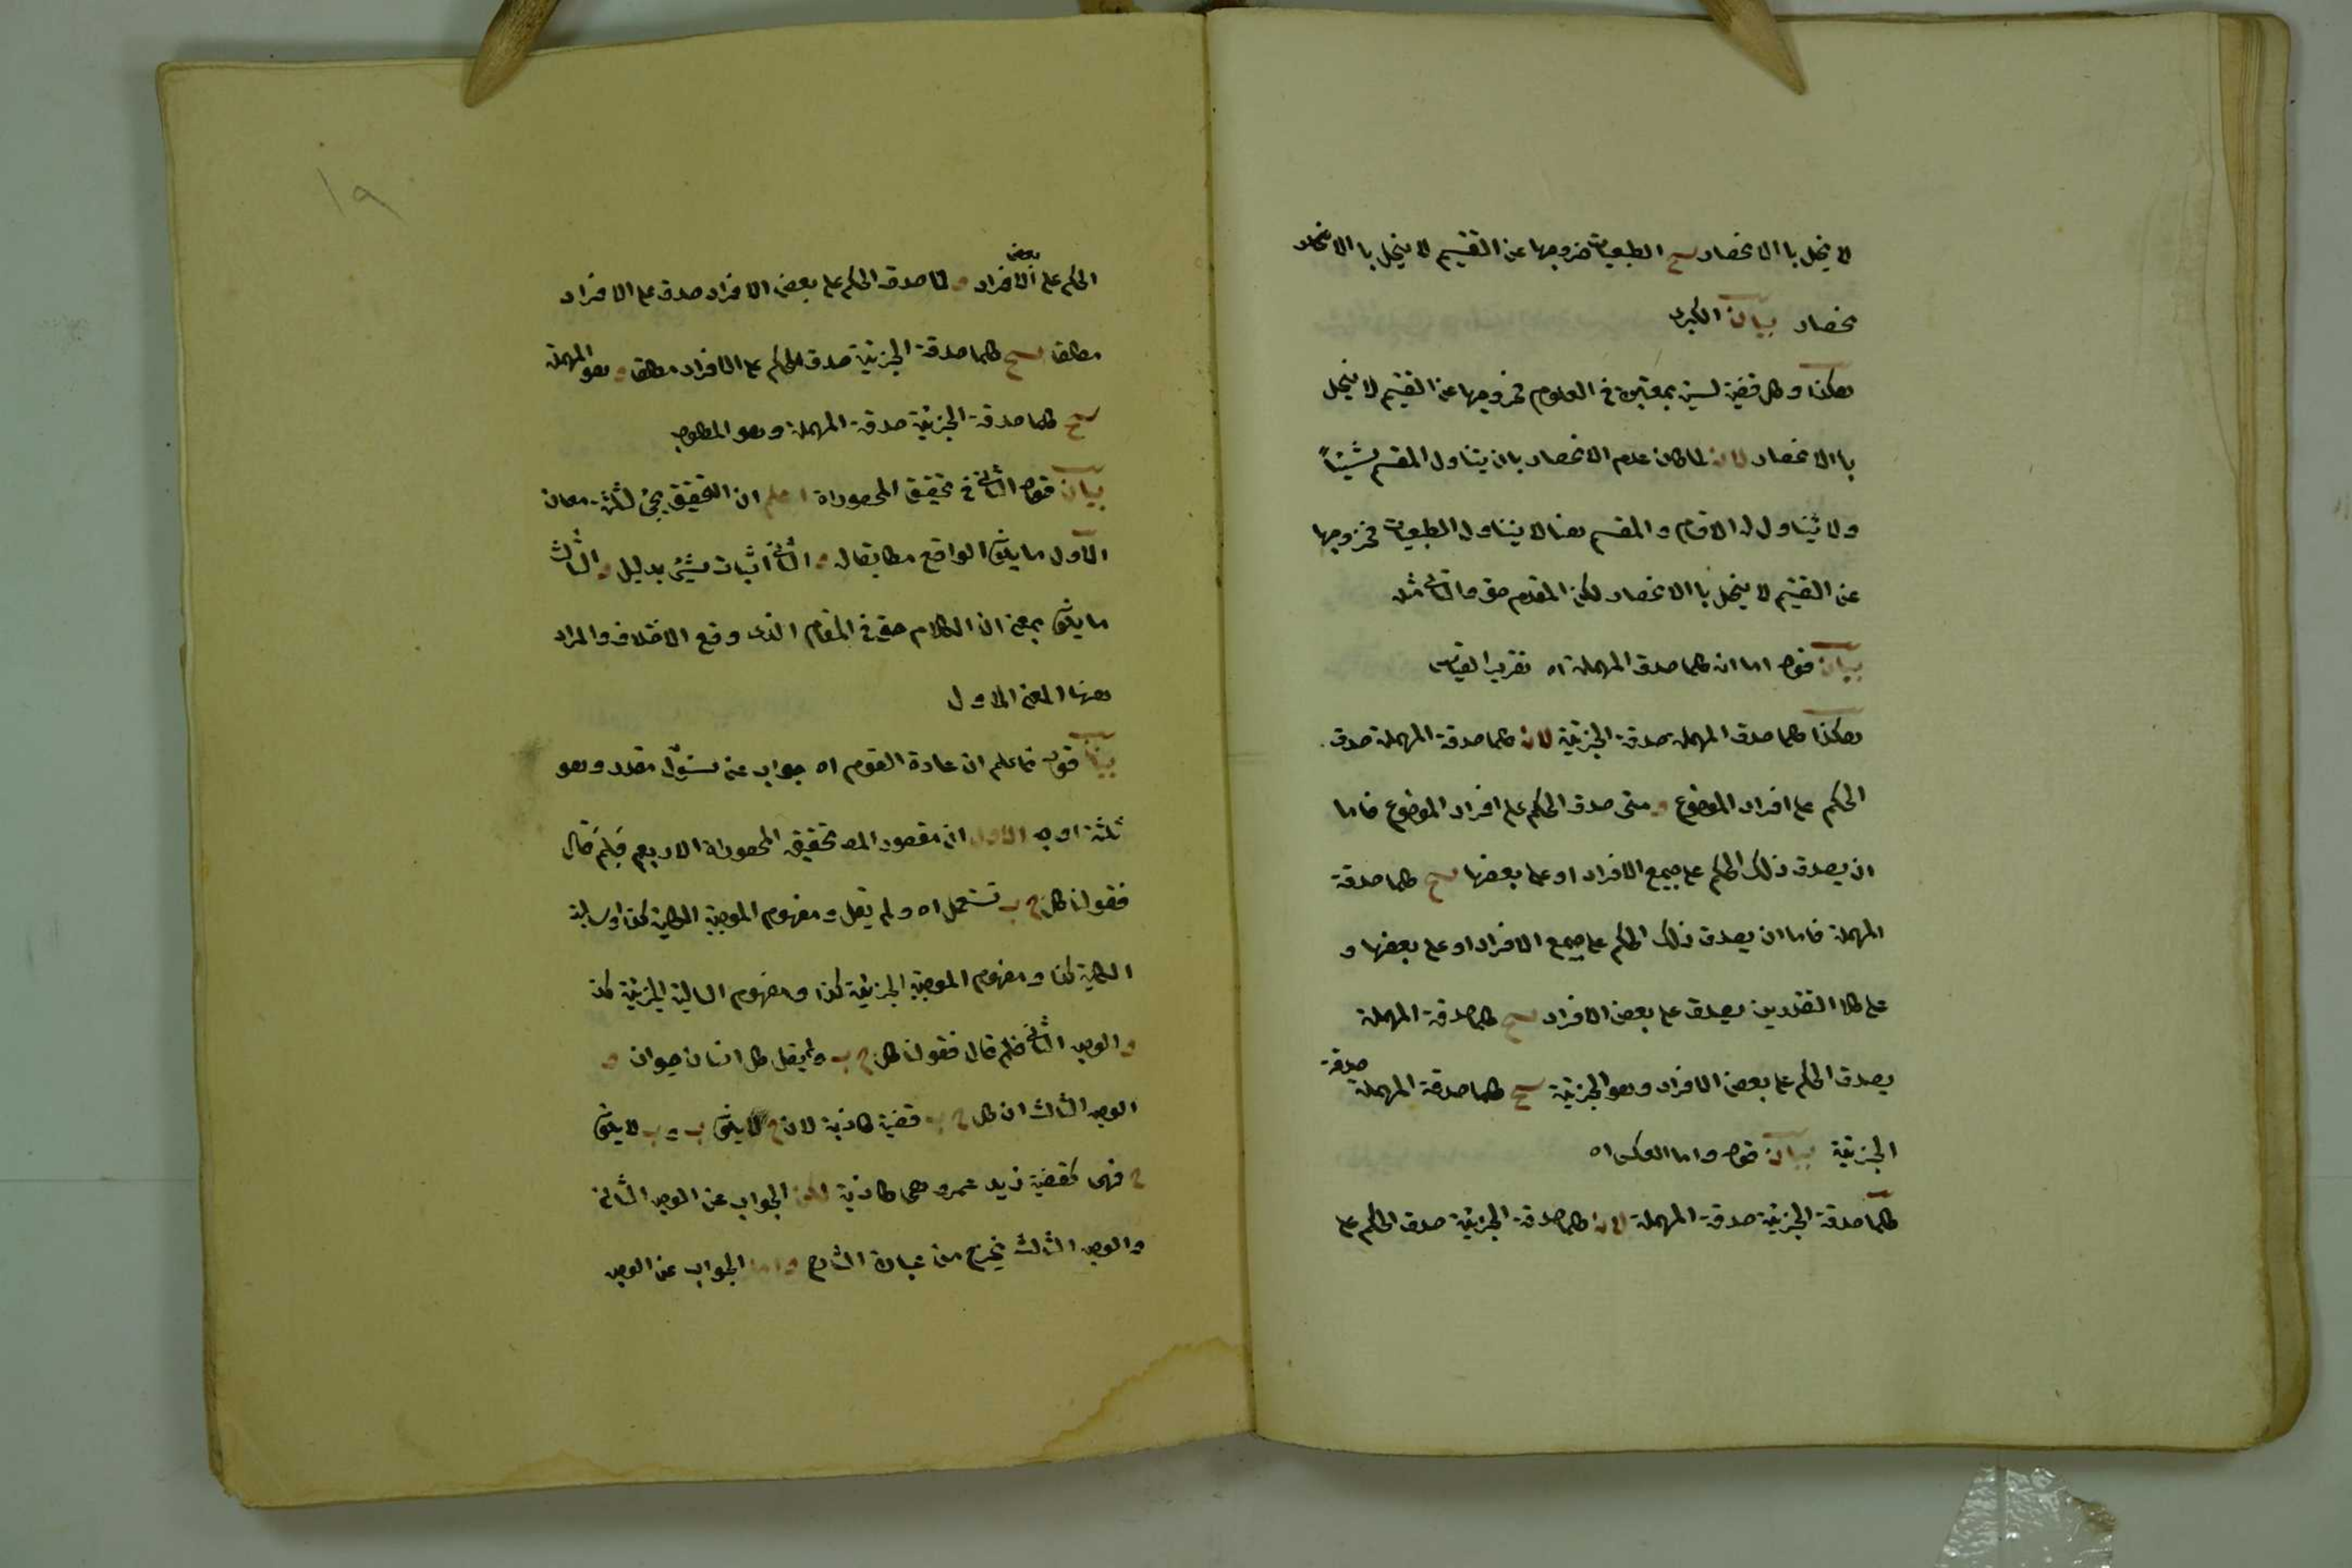 لا يخل با الانحصار سح الطبعيات خروجها عن التقسيم لا يخل با الانحصار
نحصار بيان الكبرى
هكذا وكل قضية ليست بمعتبرة في العلوم فخروجها عن التقسيم لا يخل
با الانحصار لان لما كان عدم الانحصار بان يتناول المقسم شيئاً
ولا يتناول له الاقسام والمقسم هنا لا يتناول الطبعيات فخروجها
عن التقسيم لا يخل با الانحصار لكن المقدم حق والتالى مثله
بيان قوله اما ان كلما صدق المهملة اه تقرير القياس
هكذا كلما صدق المهملة صدقة الجزئية لان كلما صدقة المهملة صدق
الحكم على افراد الموضوع و متى صدق الحكم على افراد الموضوع فاما
ان يصدق ذلك الحكم على جميع الافراد او على بعضها سح كلما صدقة
المهملة فاما ان يصدق ذلك الحكم على جميع الافراد او على بعضها و
على كلا التقدرين يصدق على بعض الافراد سح كلما صدقة المهملة
يصدق الحكم على بعض الافراد وهو الجزئية سح كلما صدقة المهملة صدقة
الجزئية بيان قوله واما العكس اه
كلما صدقة الجزئية صدقة المهملة لان كلما صدقة الجزئية صدق الحكم على
١٩
الحكم على بعض الافراد و لما صدق الحكم على بعض الافراد صدق على الافراد
مطلقا سح كلما صدقة الجزئية صدق الحكم على الافراد مطلقا و هو المهملة
سح كلما صدقة الجزئية صدقة المهملة وهو المطلوب
بيان قوله الثانى في تحقيق المحصوراة اعلم ان التحقيق يجئ لثلثة معان
الاول ما يكون الواقع مطابقا له و الثانى اثبات شيئ بدليل و الثالث
ما يكون بمعنى ان الكلام حق في المقام الذى وقع الاختلاف والمراد
ههنا المعنى الاول
بيان قوله فاعلم ان عادة القوم اه جواب عن سئول مقدر وهو
ثلثة اوجه الاول ان مقصود المصـ تحقيق المحصوراة الاربع فلم قال
فقولنا كل ج ب تستعمل اه ولم يقل و مفهوم الموجبة الكلية كذا وسالبة
الكلية كذا و مفهوم الموجبة الجزئية كذا و مفهوم السالبة الجزئية كذ
و الوجه الثانى فلم قال فقولنا كل ج ب ولم يقل كل انسان حيوان و
الوجه الثالث ان كل ج ب قضية كاذبة لان ج لا يكون ب و ب لا يكون
ج فهى كقضية زيد عمرو هى كاذبة لكن الجواب عن الوجه الثانى
والوجه الثالث يخرج من عبارة الشارح واما الجواب عن الوجه